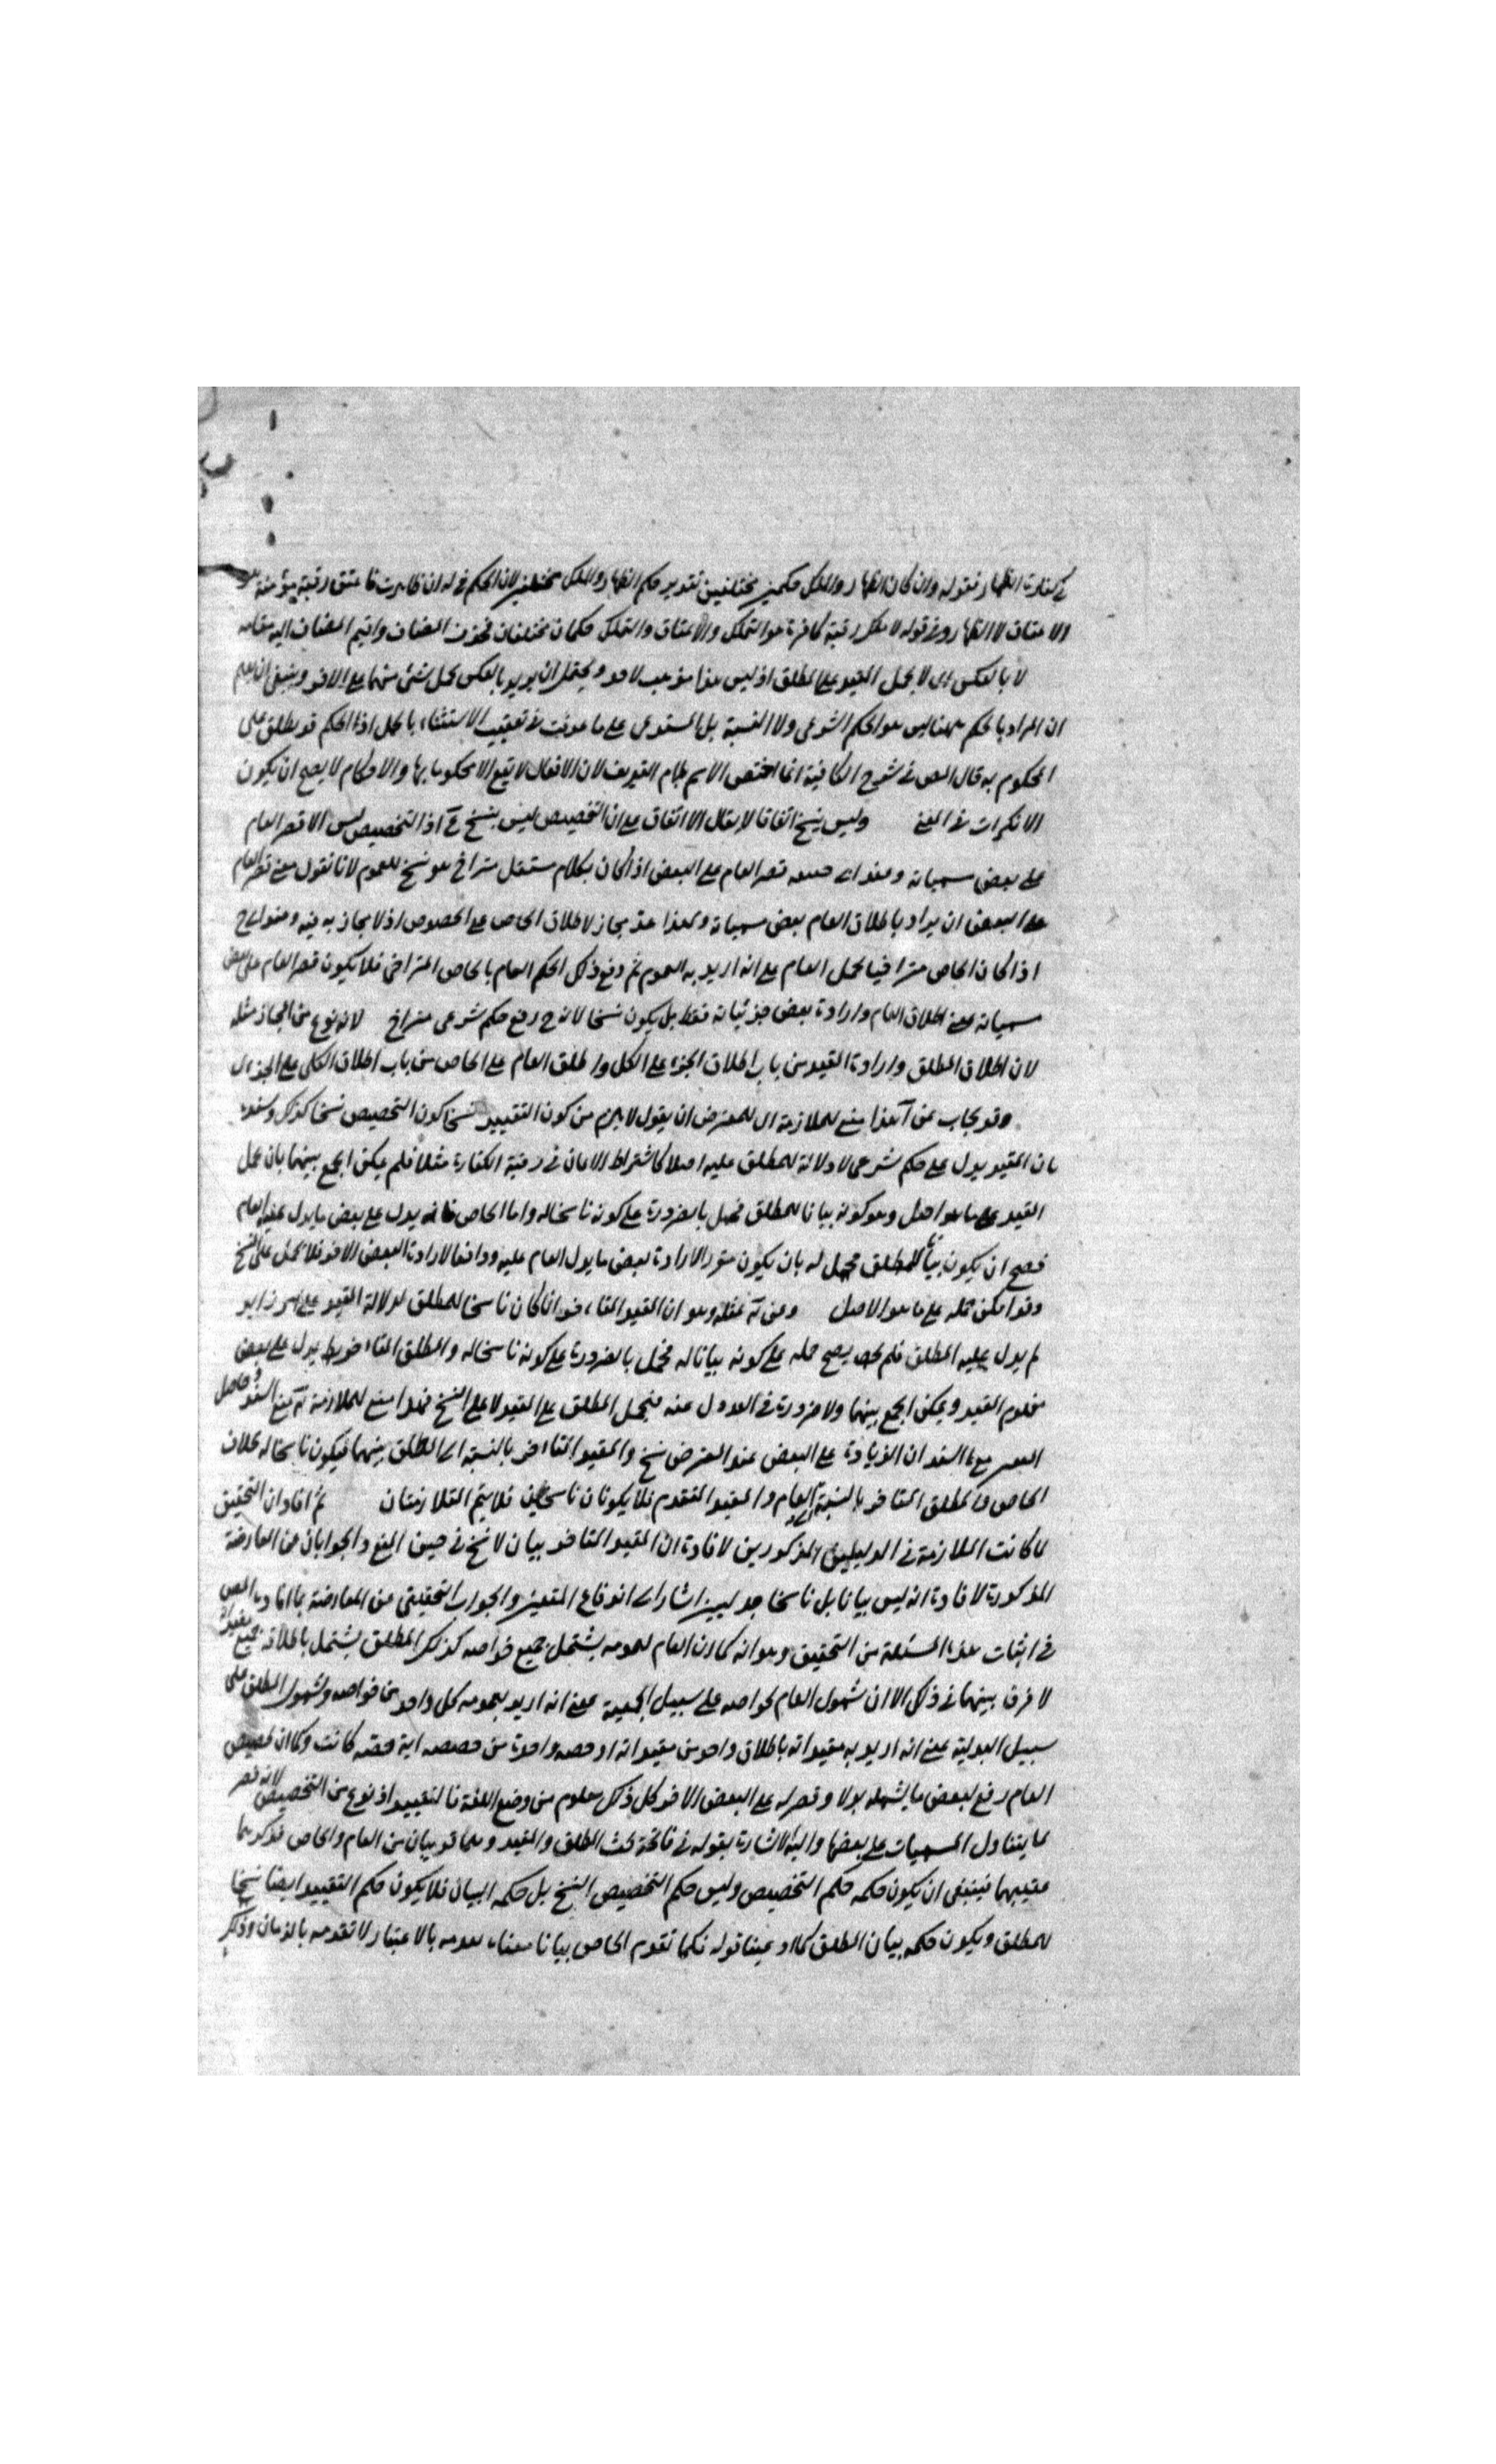 في كفارة الظهار فقوله وان كان الظهار والملك حكمين مختلفين تقدير حكم الظهار والملك مختلفين لان الحكم في له ان ظاهرت فاعتق رقبة مؤمنة هو
الاعتاق لا الظهار وفي قوله لا تملك رقبة كافرة هو التملك والاعتاق والتملك حكمان مختلفان فحذف المضاف واقيم المضاف اليه مقامه
لا بالعكس اى لا يحمل المقيد على المطلق اذ ليس هذا مذهب لاحد ويحتمل ان يريد بالعكس حمل شئ منهما على الاخر وينبغى ان يعلم
ان المراد بالحكم ههنا ليس هو الحكم الشرعى ولا النسبة بل المستدعى على ما عرفت في تعقيب الاستثناء بالجمل اذ الحكم قد يطلق على
المحكوم به قال المص في شرح الكافية انما اختص الاسم بلام التعريف لان الافعال لا يقع الا محكوما بها والاحكام لا يصح ان يكون
الا نكرات في المعنى وليس بنسخ اتفاقا لا يقال الاتفاق على ان التخصيص ليس بنسخ مم اذ التخصيص ليس الا قصر العام
على بعض مسمياته وعند اى قصر العام على البعض اذا كان بكلام مستقل متراخ هو نسخ للعموم لانا نقول معنى قصر العام
على البعض ان يراد باطلاق العام بعض مسمياته ولهذا عد مجازا لاطلاق الخاص على الخصوص اذ لا مجاز به فيه وعند اى ح
اذا كان الخاص متراخيا يحمل العام على انه اريد به العموم ثم رفع ذلك الحكم العام بالخاص المتراخى فلا يكون قصر العام على بعض
مسمياته بمعنى اطلاق العام وارادة بعض جزئياته فقط بل يكون نسخا لانه ح رفع حكم شرعى متراخ لانه نوع من المجاز مثله
لان اطلاق المطلق وارادة المقيد من باب اطلاق الجزء على الكل واطلاق العام على الخاص من باب اطلاق الكلى على الجزءى
وقد يجاب عن هذا بمنع الملازمة اى للمعترض ان يقول لا يلزم من كون التقييد نسخا كون التخصيص نسخا كذلك وسنده
بان المقيد يدل على حكم شرعى لا دلالة للمطلق عليه اصلا كاشتراط الايمان في رقبة الكفارة مثلا فلم يمكن الجمع بينهما بان يحمل
المقيد على ما هو اصل وهو كونه بيانا للمطلق فحمل بالضرورة على كونه ناسخا له واما الخاص فانه يدل على بعض ما يدل عليه العام
فصح ان يكون بيانا للمطلق فحمل له بان يكون مقررا لارادة بعض ما يدل العام عليه ودافعا لارادة البعض الاخر فلا يحمل على النسخ
وقد امكن حمله على ما هو الاصل وعن به مثله وهو ان المقيد المتاخر انما كان ناسخا للمطلق لدلالة المقيد على امر زايد
لم يدل عليه المطلق فلم يصح حمله على كونه بيانا له فحمل بالضرورة على كونه ناسخا له والمطلق المتاخر يدل على بعض
مفهوم المقيد ويمكن الجمع بينهما ولا ضرورة في العدول عنه فيحمل المطلق على المقيد لا على النسخ فهذا منع للملازمة مع السند وحاصل
السند ان الزيادة على البعض عند المعترض نسخ والمقيد المتاخر بالنسبة الى المطلق بينهما فيكون ناسخا له بخلاف
الخاص والمطلق المتاخر بالنسبة الى العام والمقيد المتقدم فلا يكونان ناسخين فلا يتم المتلازمتان ثم افاد ان التحقيق
لما كانت الملازمة في الدليلين المذكورين لافادة ان المقيد المتاخر بيان لا نسخ في حيز المنع والجوابان عن المعارضة
المذكورة لافادة انه ليس بيانا بل ناسخا جدليين اشار الى اندفاع المتعين والجواب التحقيقى عن المعارضة بما افاده المص
في اثبات هذه المسئلة من التحقيق وهو انه كما ان العام لعمومه يشتمل جميع خواصه كذلك المطلق يشتمل باطلاقه جميع مقيداته
لا فرق بينهما في ذلك الا ان شمول العام لخواصه على سبيل الجمعية بمعنى انه اريد بعمومه كل واحد من خواصه وشمول المطلق على
سبيل البدلية بمعنى انه اريد به مقيداته باطلاق واحد من مقيداته او حصة واحدة من حصصه اية حصة كانت وكما ان تخصيص
العام رفع لبعض ما يشمله بدلا وقصر له على البعض الاخر كل ذلك معلوم من وضع اللغة فالتقييد اذ نوع من التخصيص لانه قصر
لما يتناول المسميات على بعضها واليه الاشارة بقوله في فاتحة بحث المطلق والمقيد وهما قريبان من العام والخاص فذكرهما
عقيبهما فينبغى ان يكون حكمه حكم التخصيص وليس حكم التخصيص النسخ بل حكمه البيان فلا يكون حكم التقييد ايضا نسخا
للمطلق ويكون حكمه بيان المطلق كما ادعينا قوله فكما تقدم الخاص بيانا معناه بالاعتبار لا تقدمه بالزمان وذلك